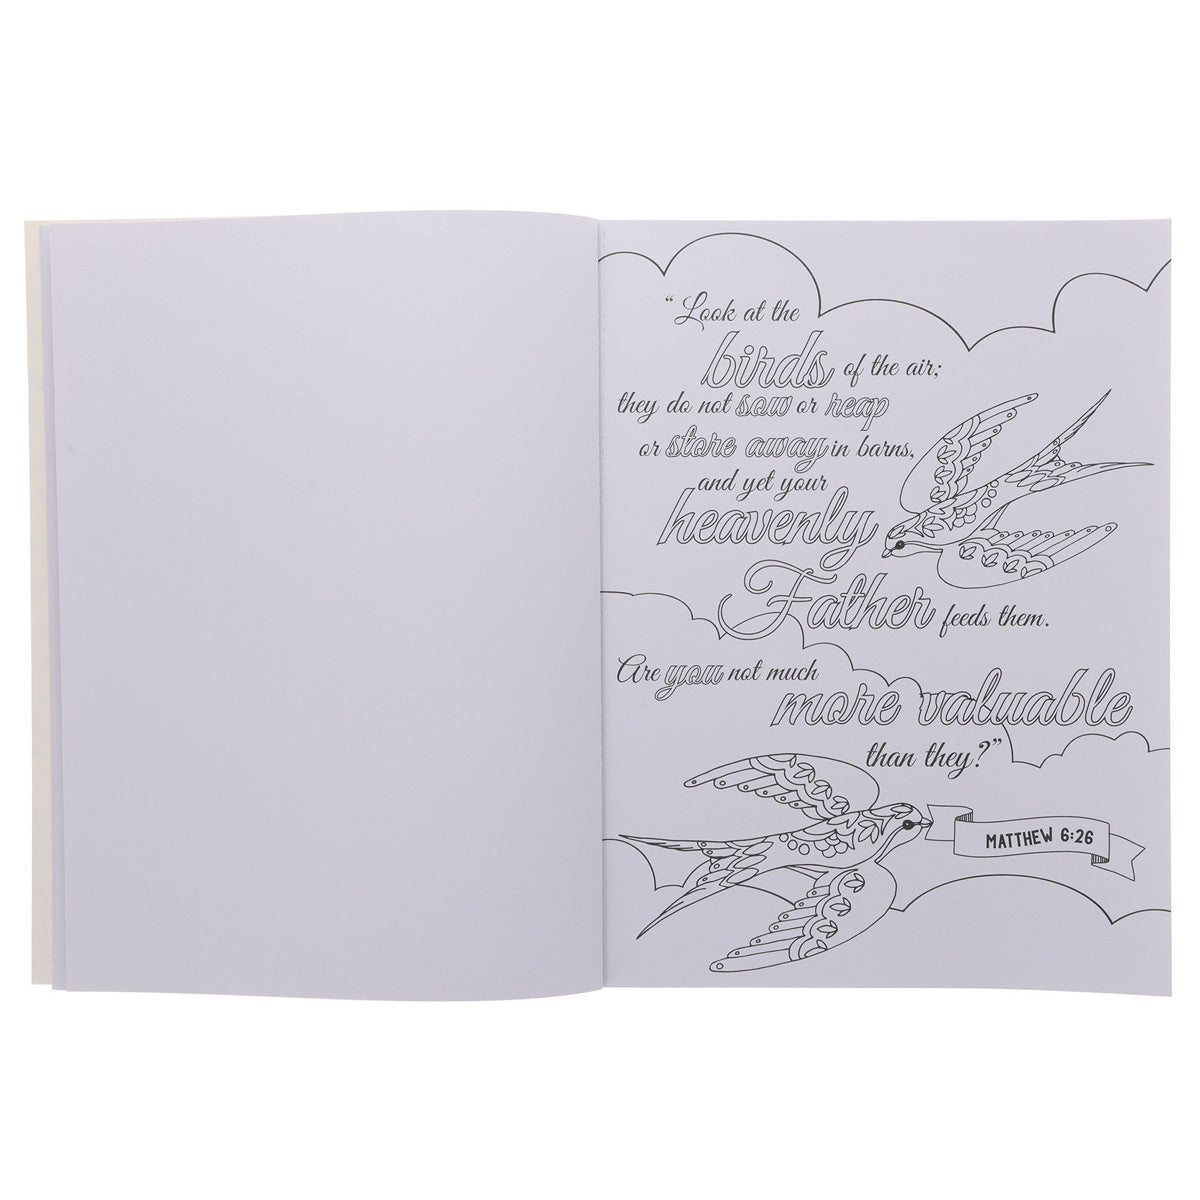 “Look at the
birds of the air;
they do not sow or reap
or store away in barns,
and yet your
heavenly
Father feeds them.
Are you not much
more valuable
than they?”
MATTHEW 6:26